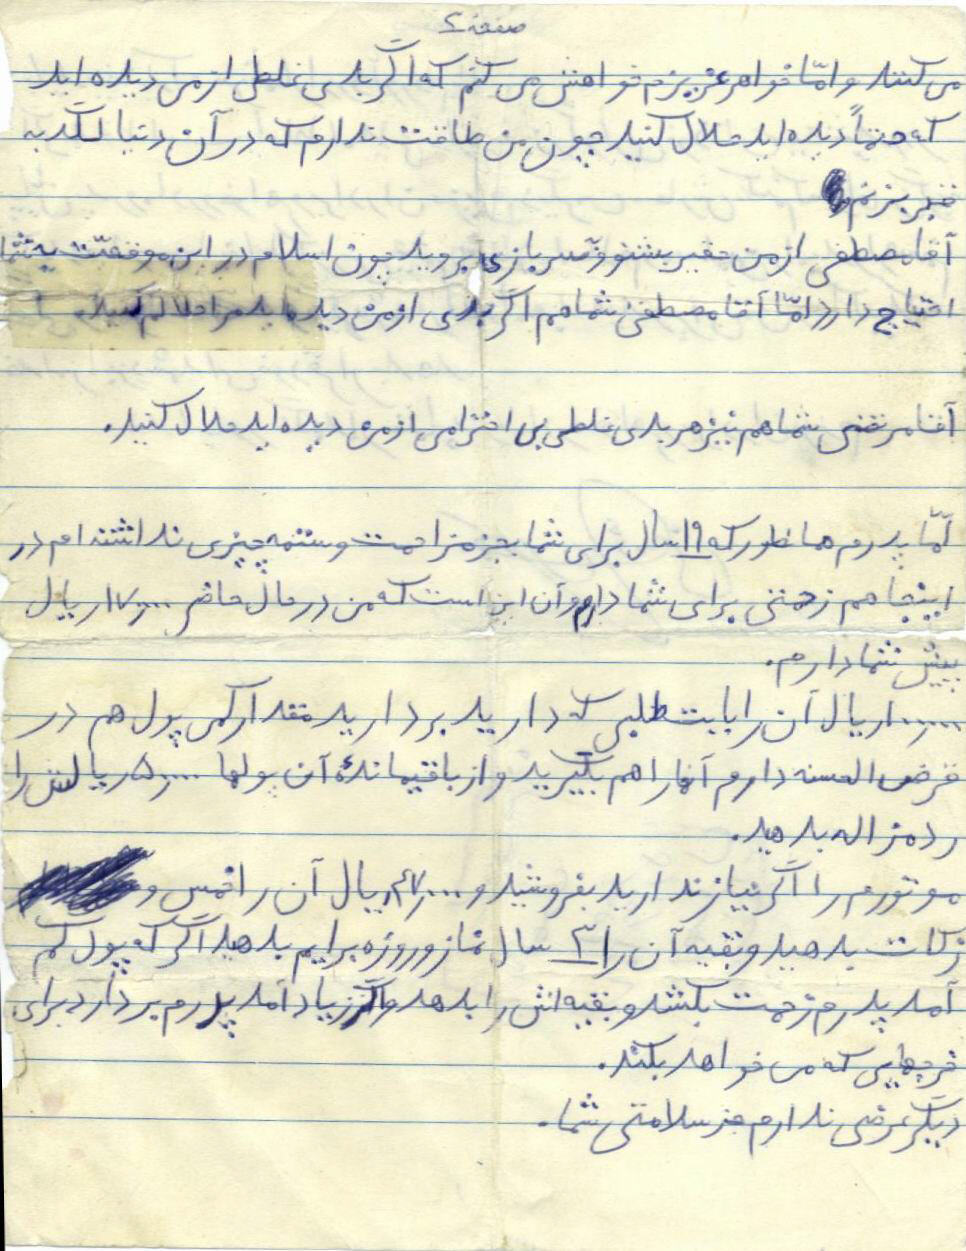 صفحه ۲
می کنند و امّا خواهر عزیزم خواهش می کنم که اگر بدی غلطی از من دیده اید
که حتماً دیده اید حلال کنید چون من طاقت ندارم که در آن دنیا لگد به
قبر بزنم
آقا مصطفی از من حقیر بشنو و سربازی بروید چون اسلام در این موقعیّت به شما
احتیاج دارد امّا آقا مصطفی شما هم اگر بدی از من دیده اید مرا حلالم کنید.
آقا مرتضی شما هم نیز هر بدی غلطی بی احترامی از من دیده اید حلال کنید.
امّا پدرم همانطور که ۱۹ سال برای شما بجز مزاحمت وستمه چیزی نداشته ام در
اینجا هم زحمتی برای شما دارم و آن این است که من در حال حاضر ۱۷۰۰۰۰ ریال
پیش شما دارم.
۱۰۰۰۰۰ ریال آن را بابت طلبی که دارید بردارید مقدار کمی پول هم در
قرض الحسنه دارم آنها را هم بگیرید و از باقیماندهٔ آن پولها ۵۰۰۰۰ ریالش را
رد مزاله بدهید.
موتورم را اگر نیاز ندارید بفروشید و ریال آن را خمس و
زکات بدهید و بقیه آن را ۳ سال نماز و روزه برایم بدهید اگر که پول کم
آمد پدرم زحمت بکشد و بقیه اش را بدهد و اگر زیاد آمد پدرم بردارد برای
خرجهایی که می خواهد بکند.
دیگر عرضی ندارم جز سلامتی شما.